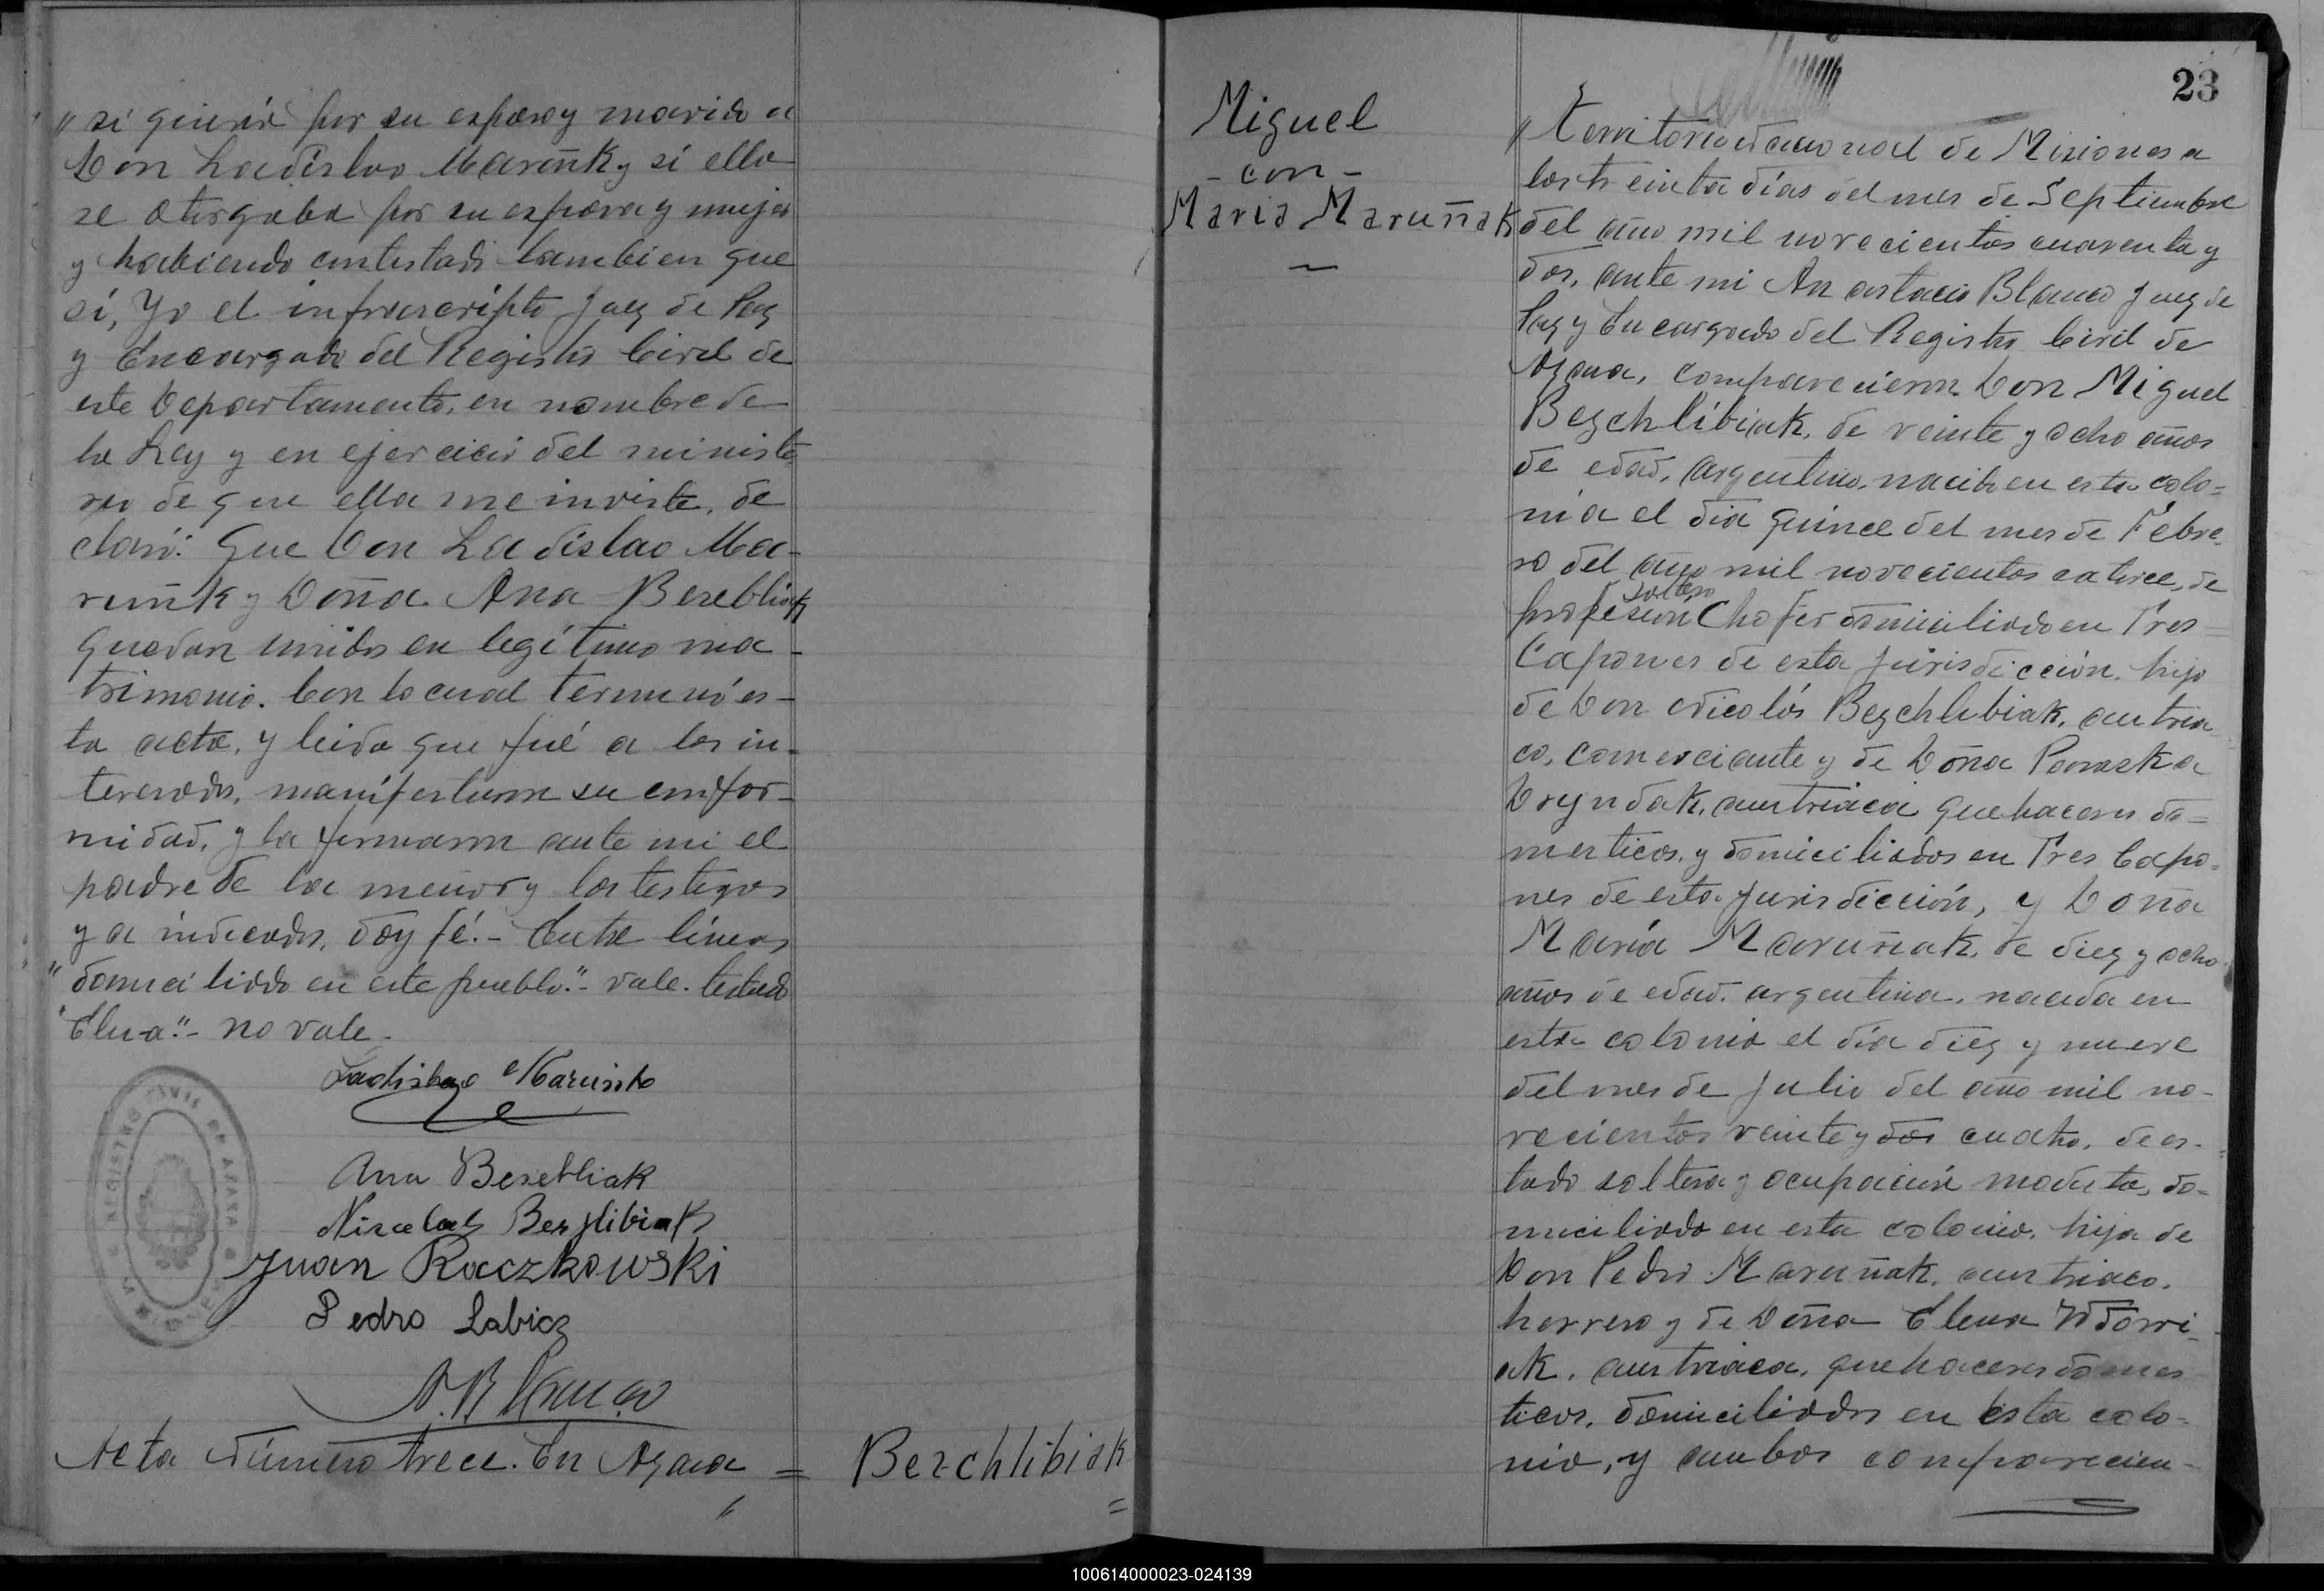 " si quería por su esposo y marido a
Don Ladislao Maruñk y si ella
se otorgaba por su esposa y mujer
y habiendo contestado tambien que
sí, Yo el infrascripto Juez de Paz
y Encargado del Registro Civil de
este Departamento, en nombre de
la Ley y en ejercicio del ministe
rio de que ella me inviste, de
claro: Que Don Ladislao Ma-
ruñk y Doña Ana Berebliak
quedan unidos en legítimo ma-
trimonio. Con lo cual terminó es-
ta acta, y leida que fué a los in-
teresados, manifestaron su confor-
midad, y la firmaron ante mi el
padre de la menor y los testigos
ya indicados, doy fé.- Entre líneas
"domiciliado en este pueblo".- vale. testado
"Elena".- no vale.
Ana Berebliak
Juan Raczkowski
Pedro Labicz
A. Blanco
REGISTRO CIVIL DE AZARA
Acta Número trece. En Azara =
Bezchlibiak
=
23
Miguel
- con -
Maria Maruñak
" Territorio Nacional de Misiones a
los treinta días del mes de Septiembre
del año mil novecientos cuarenta y
dos, ante mi Anastacio Blanco Juez de
Paz y Encargado del Registro Civil de
Azara, comparecieron Don Miguel
Bezchlibiak, de veinte y ocho años
de edad, argentino, nacido en esta colo=
nia el día quince del mes de Febre-
ro del año mil novecientos catorce, de
soltero
profesión Chofer domiciliado en Tres
Capones de esta jurisdicción, hijo
de Don Nicolás Bezchlibiak, austria
co, comerciante y de Doña Paraska
Dryndak, austriaca quehaceres do=
mesticos, y domiciliados en Tres Capo=
nes de esta jurisdicción, y Doña
María Maruñak, de diez y ocho
años de edad, argentina, nacida en
esta colonia el día diez y nueve
del mes de Julio del año mil no-
vecientos veinte y dos cuatro, de es-
tado soltera y ocupación modista, do-
miciliada en esta colonia, hija de
Don Pedro Maruñak, austriaco,
herrero y de Doña Elena Wdowi-
ak, austriaca, quehaceres domes
ticos, domiciliados en esta colo-
nia, y ambos comparecien-